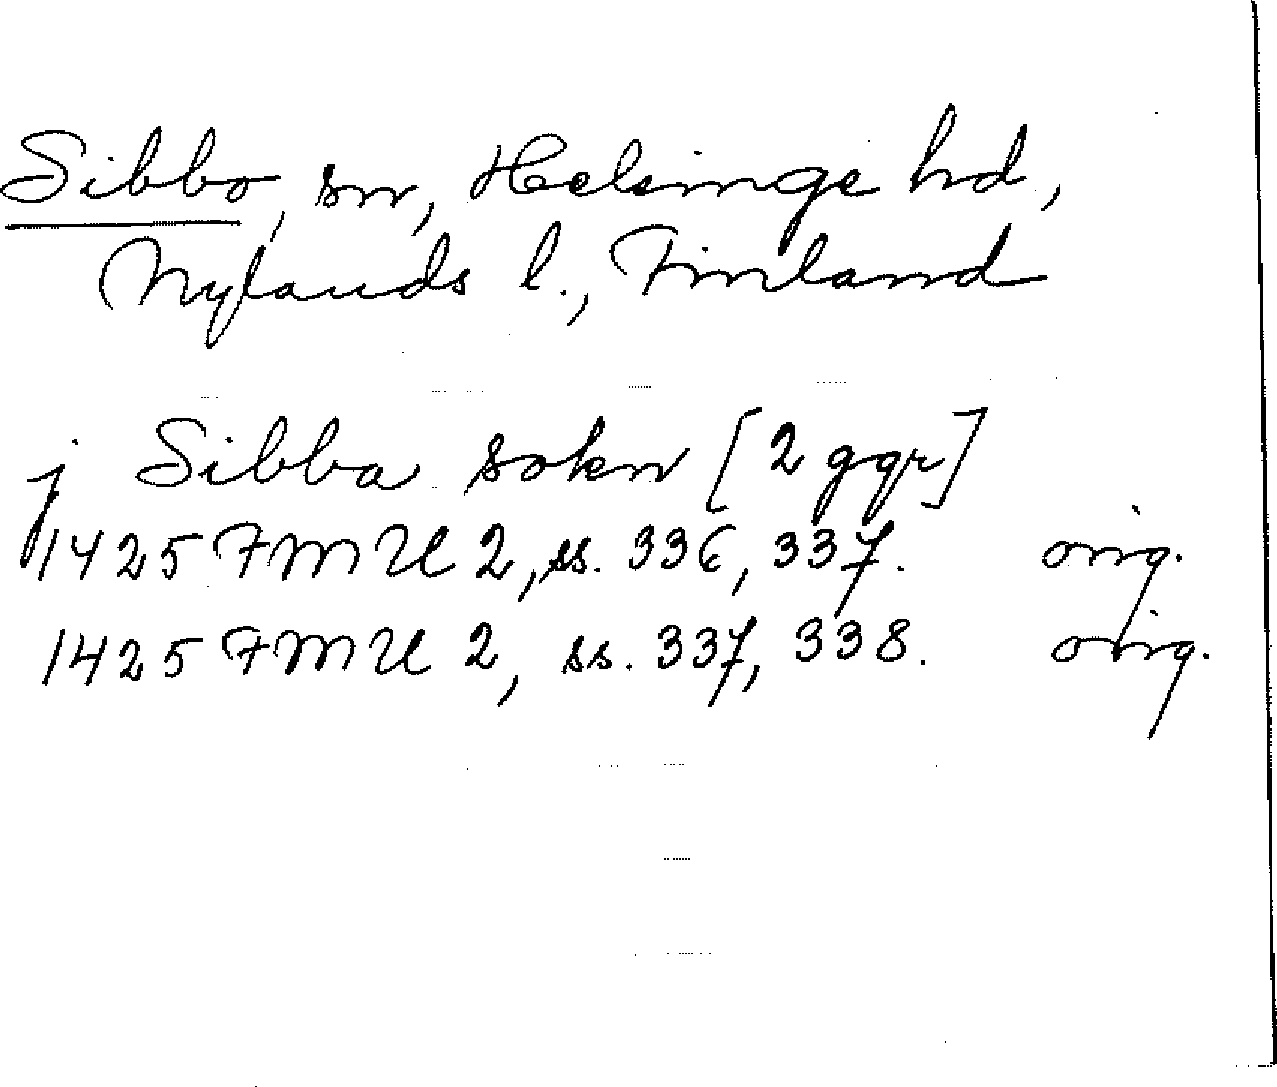 Sibbo, sn, Helsinge hd,
Nylands l., Finland
j Sibba sokn [2 ggr]
1425 FMU 2, ss. 336, 337. orig.
1425 FMU 2, ss. 337, 338. orig.